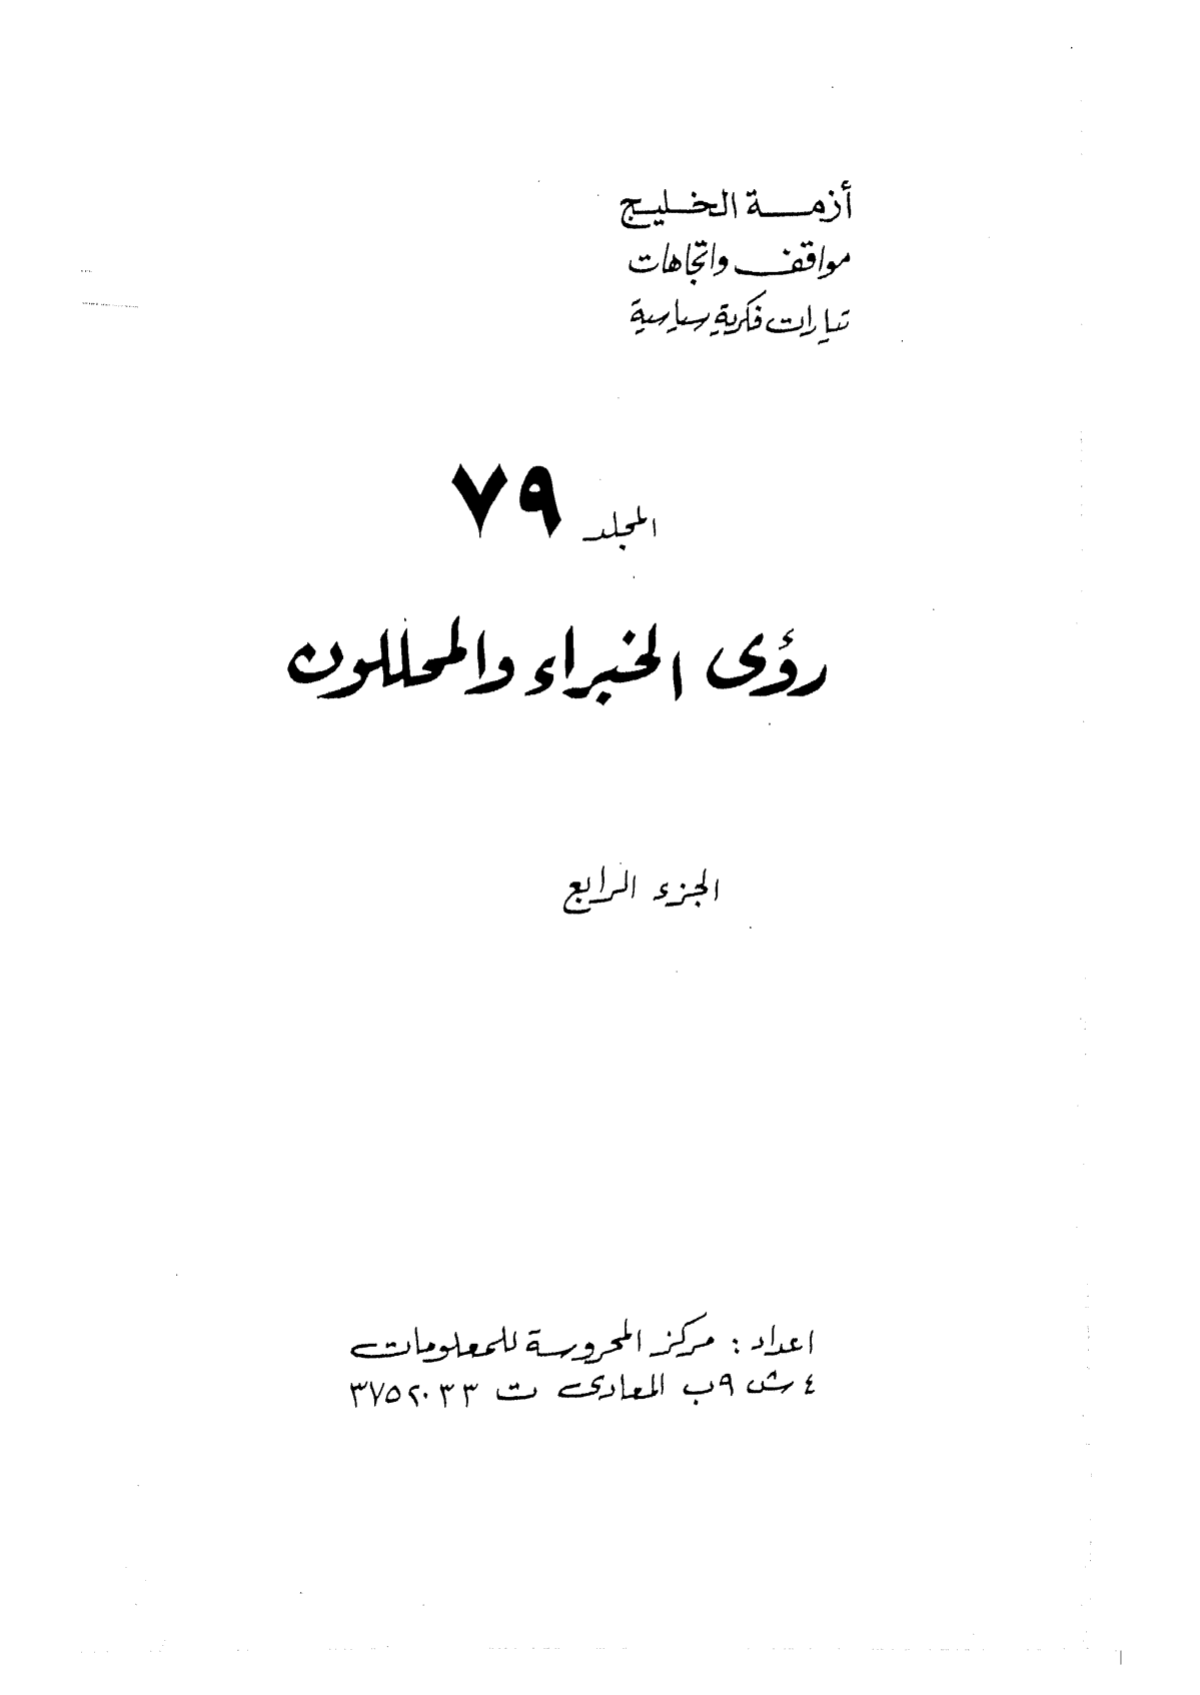 أزمة الخليج
مواقف واتجاهات
تيارات فكرية سياسية
المجلد ٧٩
رؤى الخبراء والمحللون
الجزء الرابع
اعداد : مركز المحروسة للمعلومات
٤ ش ٩ب المعادى ت ٣٧٥٢٠٣٣